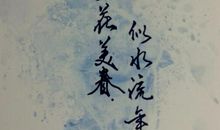 似水流年
花美眷